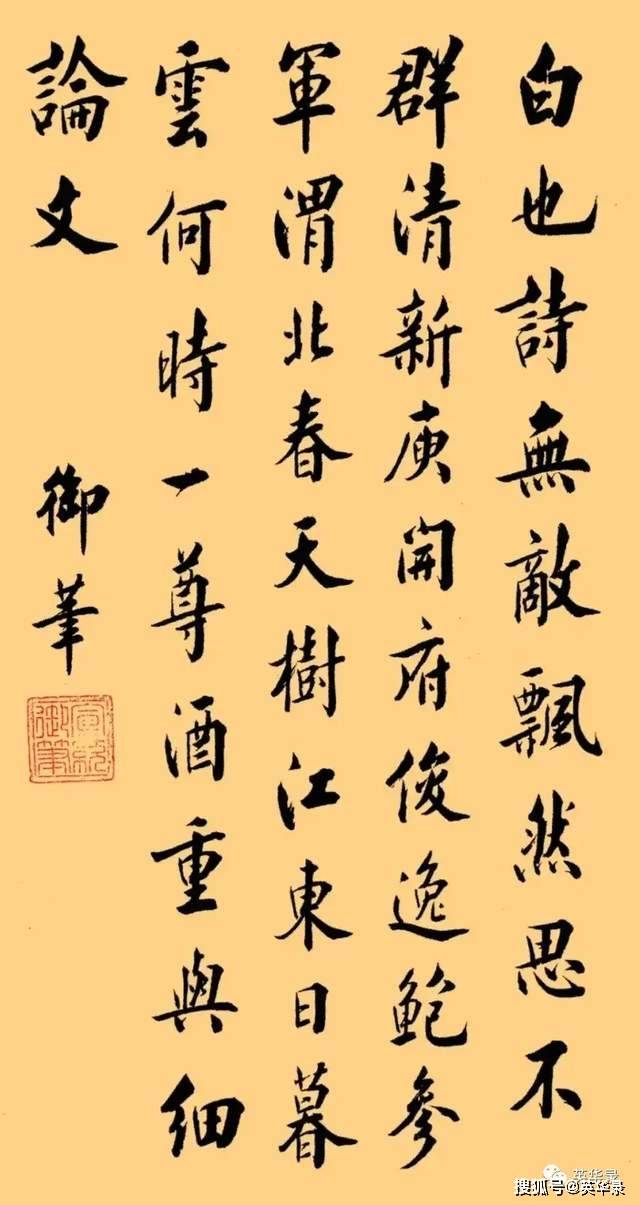 白也詩無敵飄然思不
群清新庾開府俊逸鮑參
軍渭北春天樹江東日暮
雲何時一尊酒重與細
論文
御筆
宣統
御筆
英华录
搜狐号@英华录